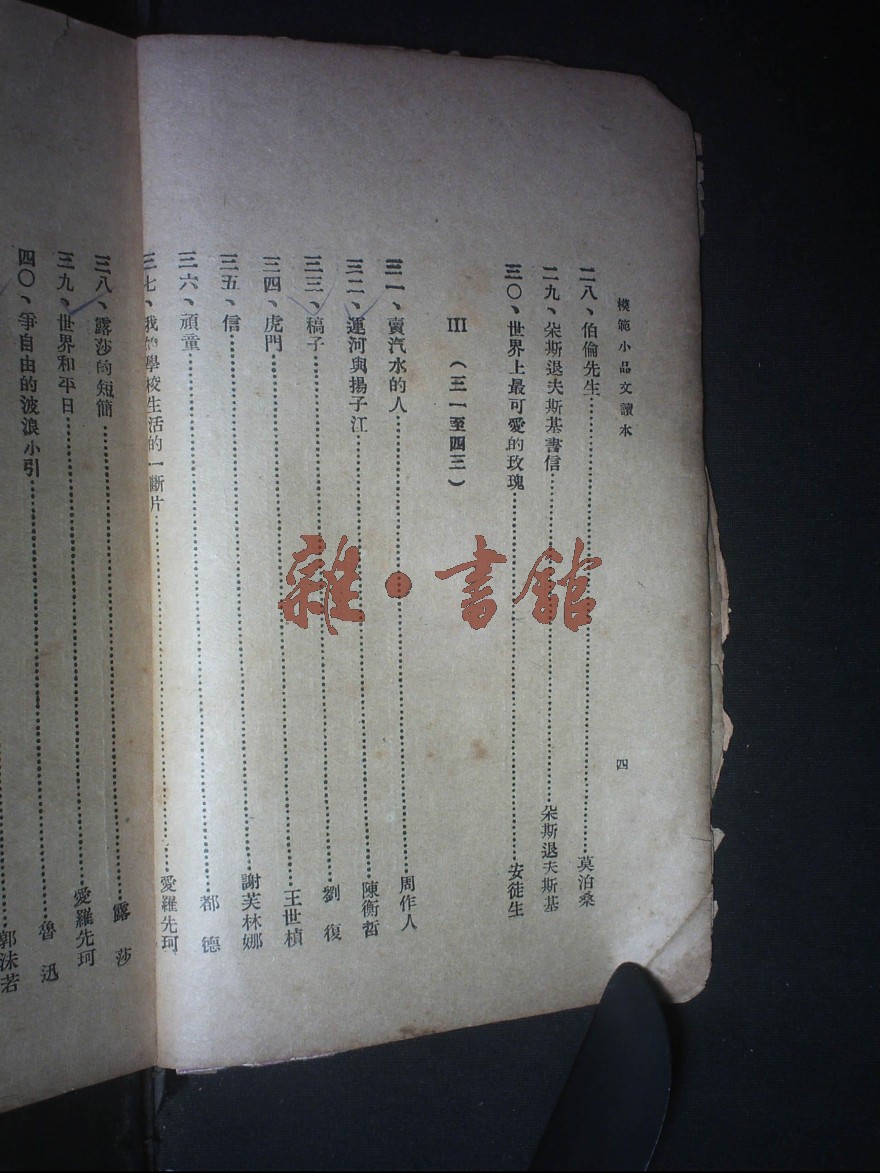 模範小品文讀本
四
二八、伯倫先生……莫泊桑
二九、朵斯退夫斯基書信……朵斯退夫斯基
三〇、世界上最可愛的玫瑰……安徒生
III (三一至四三)
三一、賣汽水的人……周作人
三二、運河與揚子江……陳衡哲
三三、稿子……劉復
三四、虎門……王世楨
三五、信……謝芙林娜
三六、頑童……都德
三七、我的學校生活的一斷片……愛羅先珂
三八、露莎的短簡……露莎
三九、世界和平日……愛羅先珂
四〇、爭自由的波浪小引……魯迅
郭沫若
雜·書館